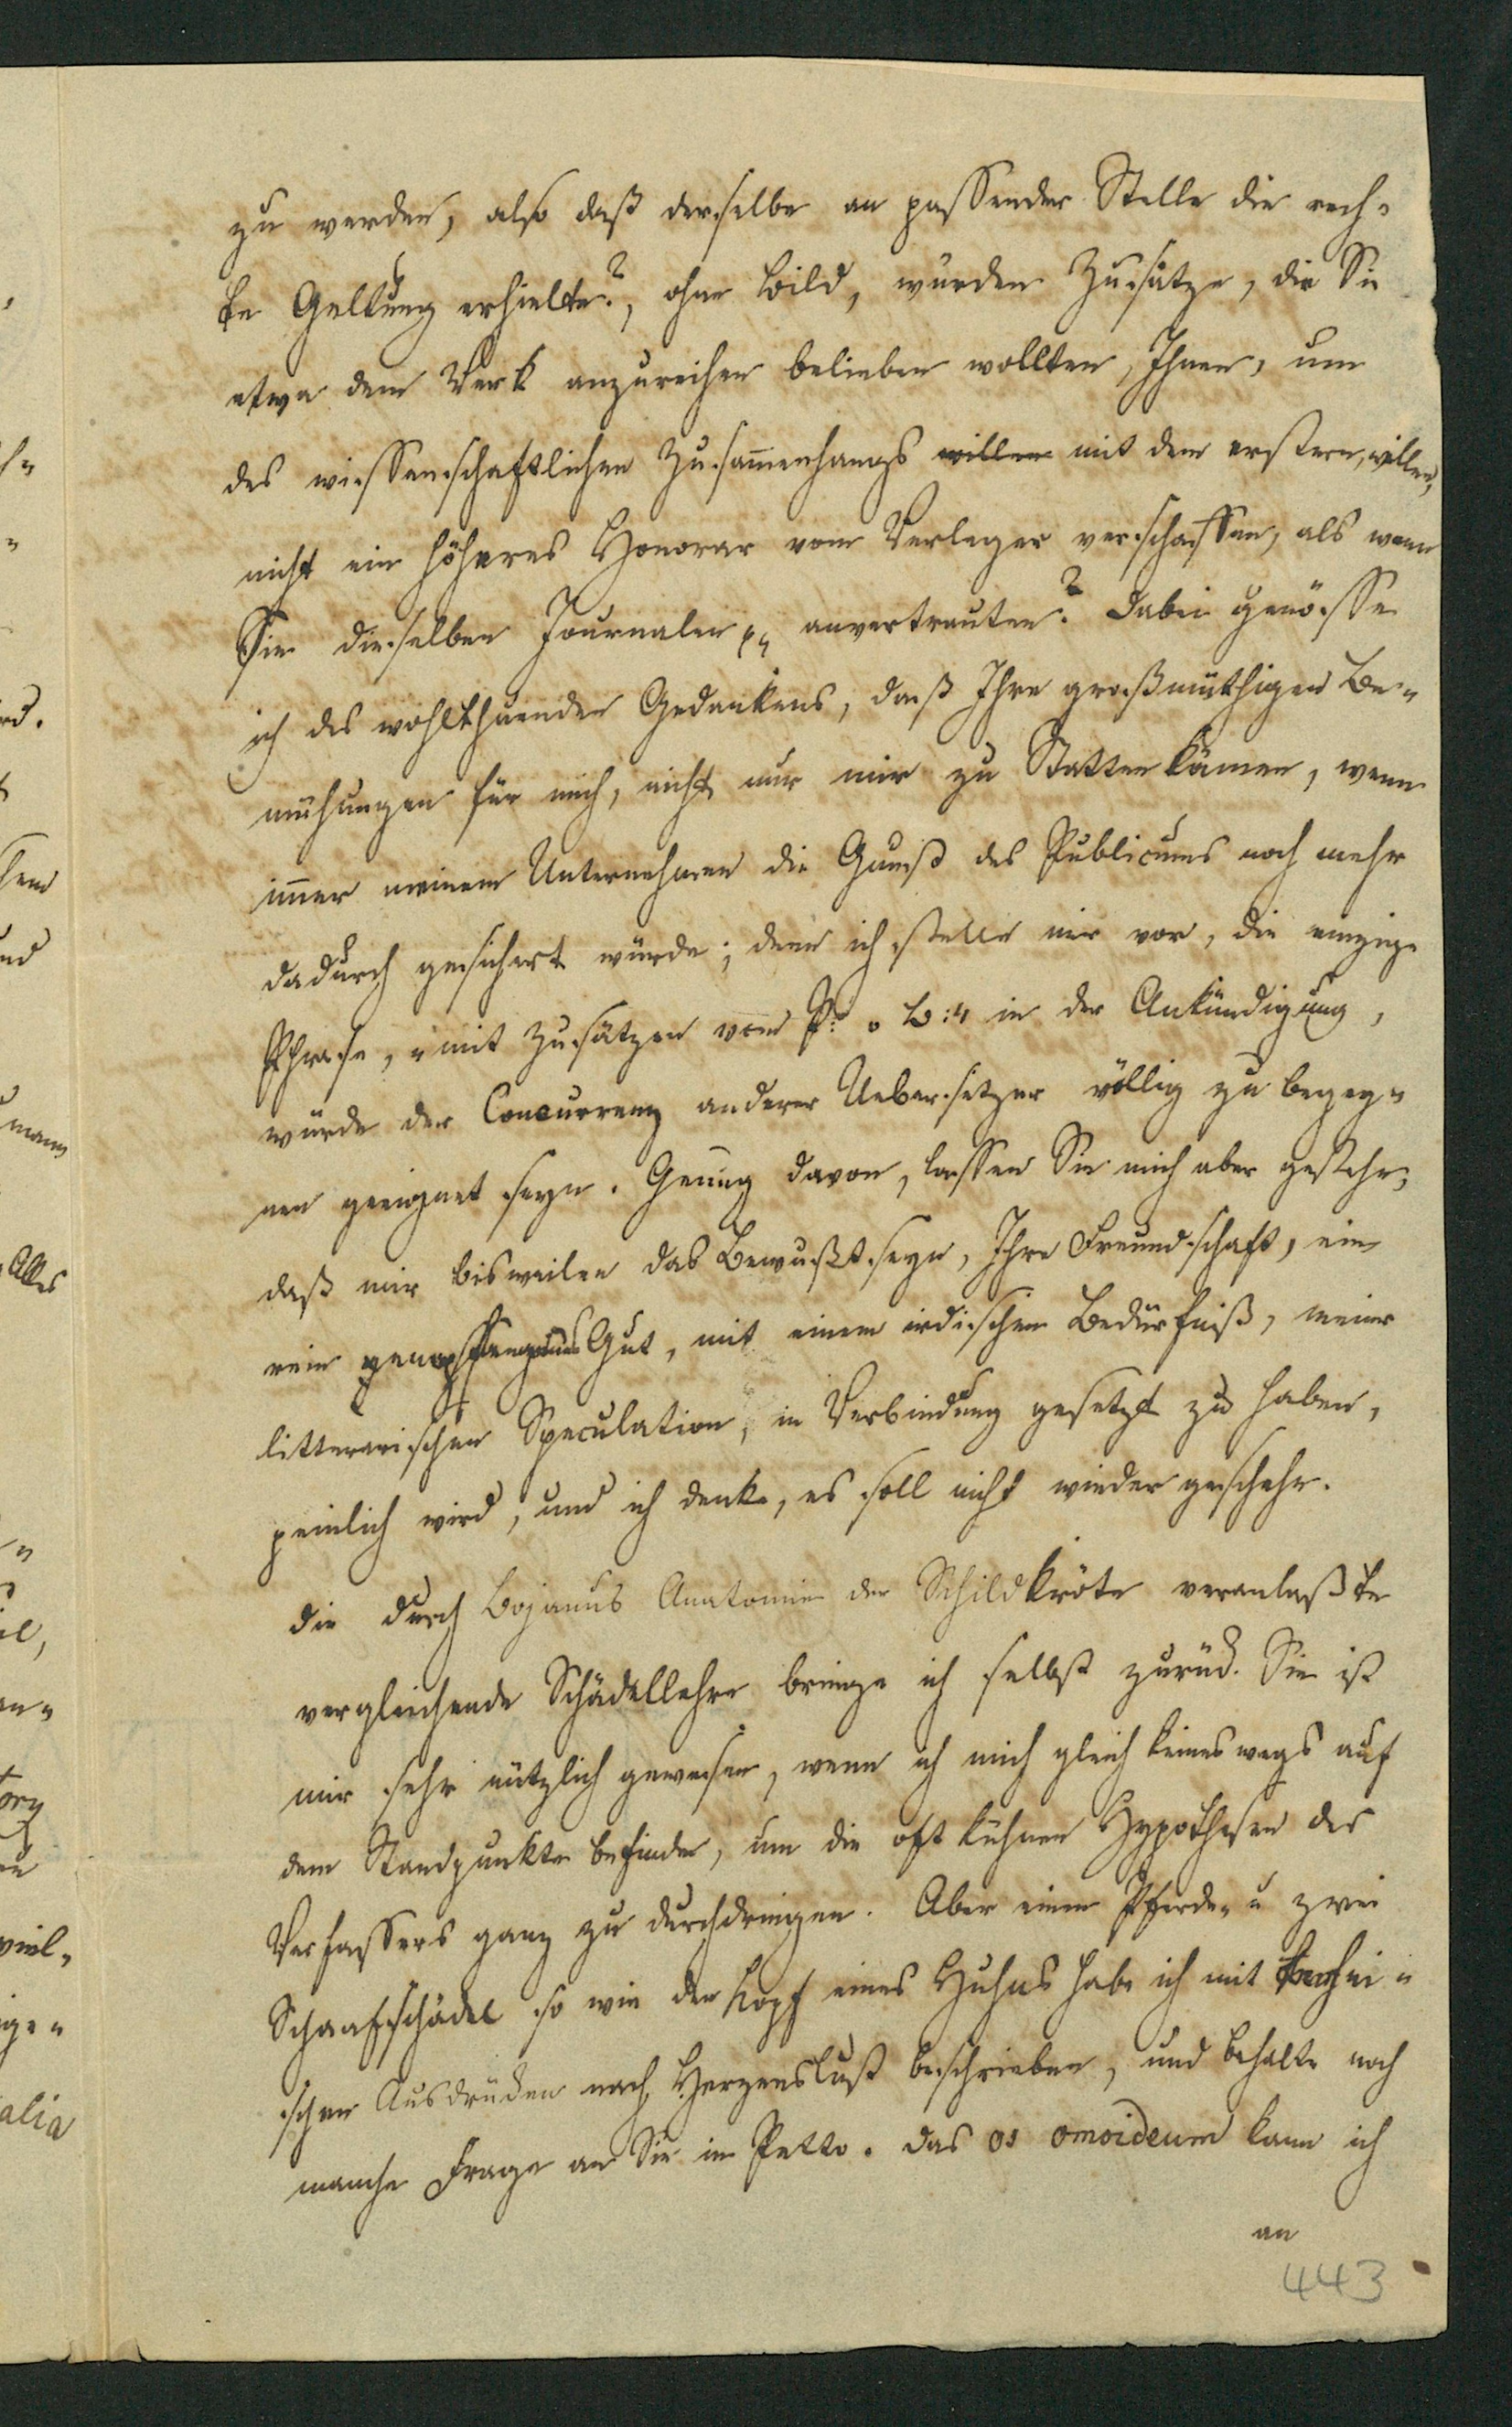 zu werden, also daß derselbe an passender Stelle die rech-
te Geltung erhielte?, ohne Bild, würden Zusätze, die Sie
etwa dem Werk anzureihen belieben wollten, Ihnen, um
des wissenschaftlichen Zusam̄enhangs willen mit dem erstern, willen,
nicht ein höheres Honorar vom Verleger verschaffen, als wenn
Sie dieselben Journalen pp anvertrauten? Dabei genösse
ich des wohlthuenden Gedankens, daß Ihre großmüthigen Be-
mühungen für mich, nicht nur mir zu Statten kämen, wenn
im̄er meinem Unternehmen die Gunst des Publicums noch mehr
dadurch gesichert würde; denn ich stelle mir vor, die einzige
Phrase, „mit Zusätzen von P: v B:" in der Ankündigung,
würde der Concurrenz anderer Uebersetzer völlig zu begeg-
nen geeignet seyn. Genug davon, lassen Sie mich aber gestehn,
daß mir bisweilen das Bewußtseyn, Ihre Freundschaft, ein
rein Gut, mit einem irdischen Bedürfniß, meiner
litterarischen Speculation, in Verbindung gesetzt zu haben,
peinlich wird, und ich denke, es soll nicht wieder geschehn.
Die durch Bojanus Anatomie der Schildkröte veranlaßte
vergleichende Schädellehre bringe ich selbst zurück. Sie ist
mir sehr nützlich gewesen, wenn ich mich gleich keineswegs auf
dem Standpunkte befinde, um die oft kühnen Hypothesen des
Verfassers ganz zu durchdringen. Aber einen Pferde- u zwei
Schaafschädel so wie den Kopf eines Huhns habe ich mit techni-
schen Ausdrücken nach Herzenslust beschrieben, und behalte noch
manche Frage an Sie in Petto. Das os omoideum kann ich
an
443